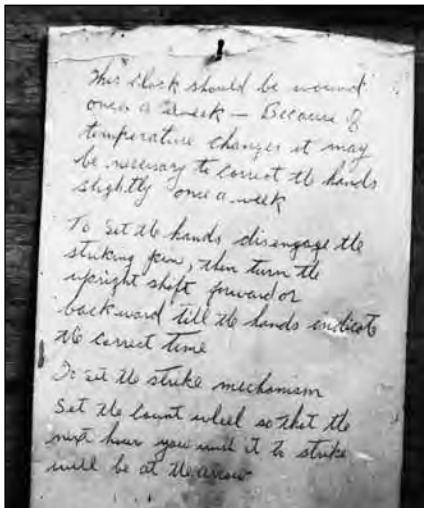 This clock should be wound
once a week — Because of
temperature changes it may
be necessary to correct the hands
slightly once a week
To set the hands disengage the
striking pin, then turn the
upright shift forward or
backward till the hands indicate
the correct time
To set the strike mechanism
Set the count wheel so that the
next hour you wish it to strike
will be at the arrow